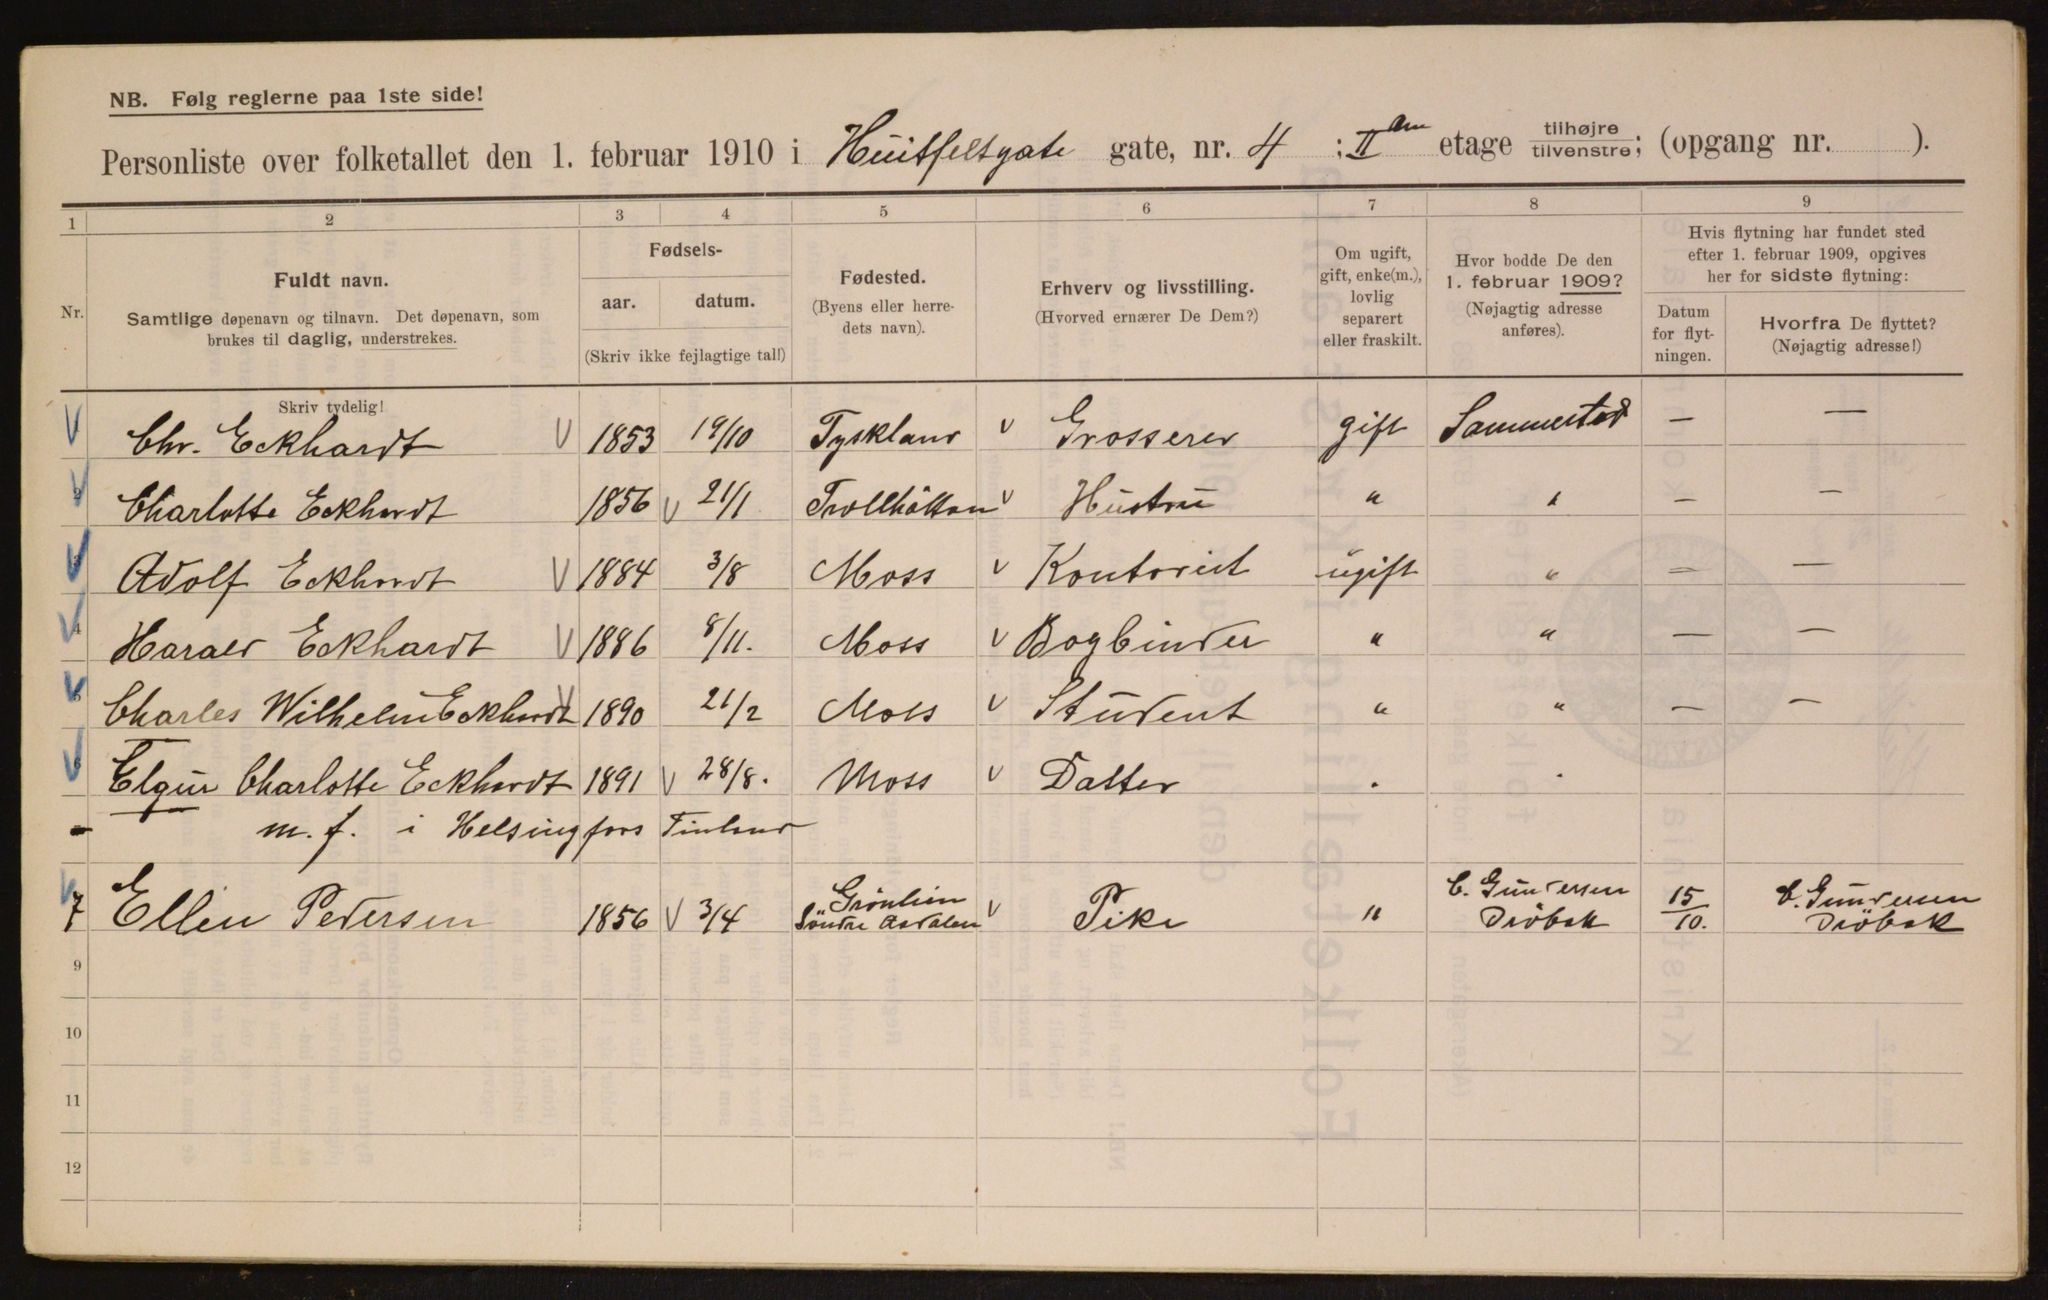 NB. Følg reglerne paa 1ste side!
Personliste over folketallet den 1. februar 1910 i Huitfeltsgate gate, nr. 4 ; II etage tilhøjre tilvenstre; (opgang nr. ).
1 2 3 4 5 6 7 8 9
Nr.
Fuldt navn.
Samtlige døpenavn og tilnavn. Det døpenavn, som
brukes til daglig, understrekes.
Skriv tydelig!
Fødsels-
aar. datum.
(Skriv ikke fejlagtige tal!)
Fødested.
(Byens eller herre-
dets navn).
Erhverv og livsstilling.
(Hvorved ernærer De Dem?)
Om ugift,
gift, enke(m.),
lovlig
separert
eller fraskilt.
Hvor bodde De den
1. februar 1909?
(Nøjagtig adresse
anføres).
Hvis flytning har fundet sted
efter 1. februar 1909, opgives
her for sidste flytning:
Datum
for flyt-
ningen.
Hvorfra De flyttet?
(Nøjagtig adresse!)
Chr. Eckhardt 1853 19/10 Tyskland Grosserer gift Sammested — —
2 Charlotte Eckhardt 1856 21/1 Trollhättan Hustru " " — —
3 Adolf Eckhardt 1884 3/8 Moss Kontorist ugift " — —
4 Harald Eckhardt 1886 8/11. Moss Bogbinder " " — —
5 Charles Wilhelm Eckhardt 1890 21/2 Moss Student " " — —
6 Charlotte Eckhardt 1891 28/8. Moss Datter " "
m. f. i Helsingfors Finland
7 Ellen Pedersen 1856 3/4 Grönlien Söndre Asdalen Pike " C. Gundersen Dröbak 15/10. C. Gundersen Dröbak
9
10
11
12